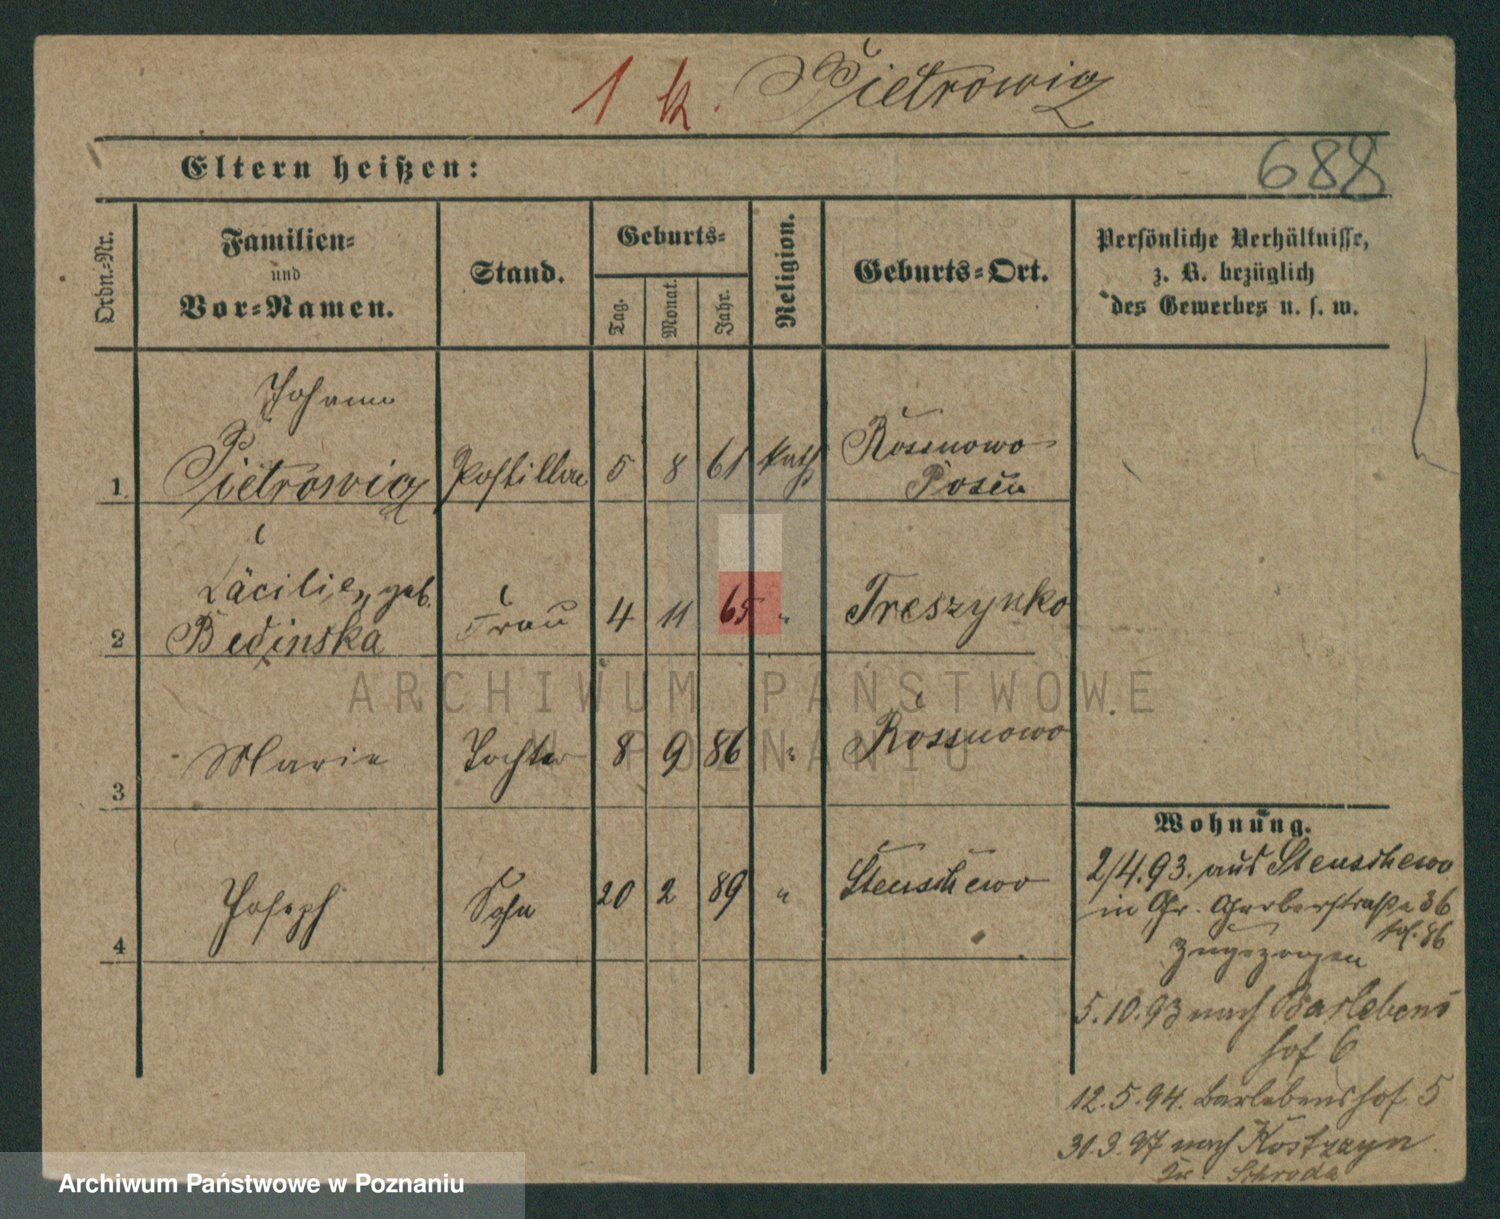 1 k. Pietrowicz
688
Eltern heißen:
Ordn.-Nr.
Familien-
und
Vor-Namen.
Stand.
Geburts-
Tag.
Monat.
Jahr.
Religion.
Geburts-Ort.
Persönliche Verhältnisse,
z. B. bezüglich
des Gewerbes u. s. w.
Johann
1 Pietrowicz Postillon 5 8 61 kath Rossnowo
Posen
Cäcilie, geb.
2 Bedinska Frau 4 11 65 " Treszynko
3 Marie Tochter 8 9 86 " Rossnowo
4 Joseph Sohn 20 2 89 " Stenschewo
Wohnung.
2/4.93. aus Stenschewo
in Gr. Gerberstraße 36
fol. 86
zugezogen
5.10.93 nach Barlebens
hof 6
12.5.94. Barlebenshof 5
30.3.97 nach Kostrzyn
Kr. Schroda
ARCHIWUM PAŃSTWOWE
W POZNANIU
Archiwum Państwowe w Poznaniu